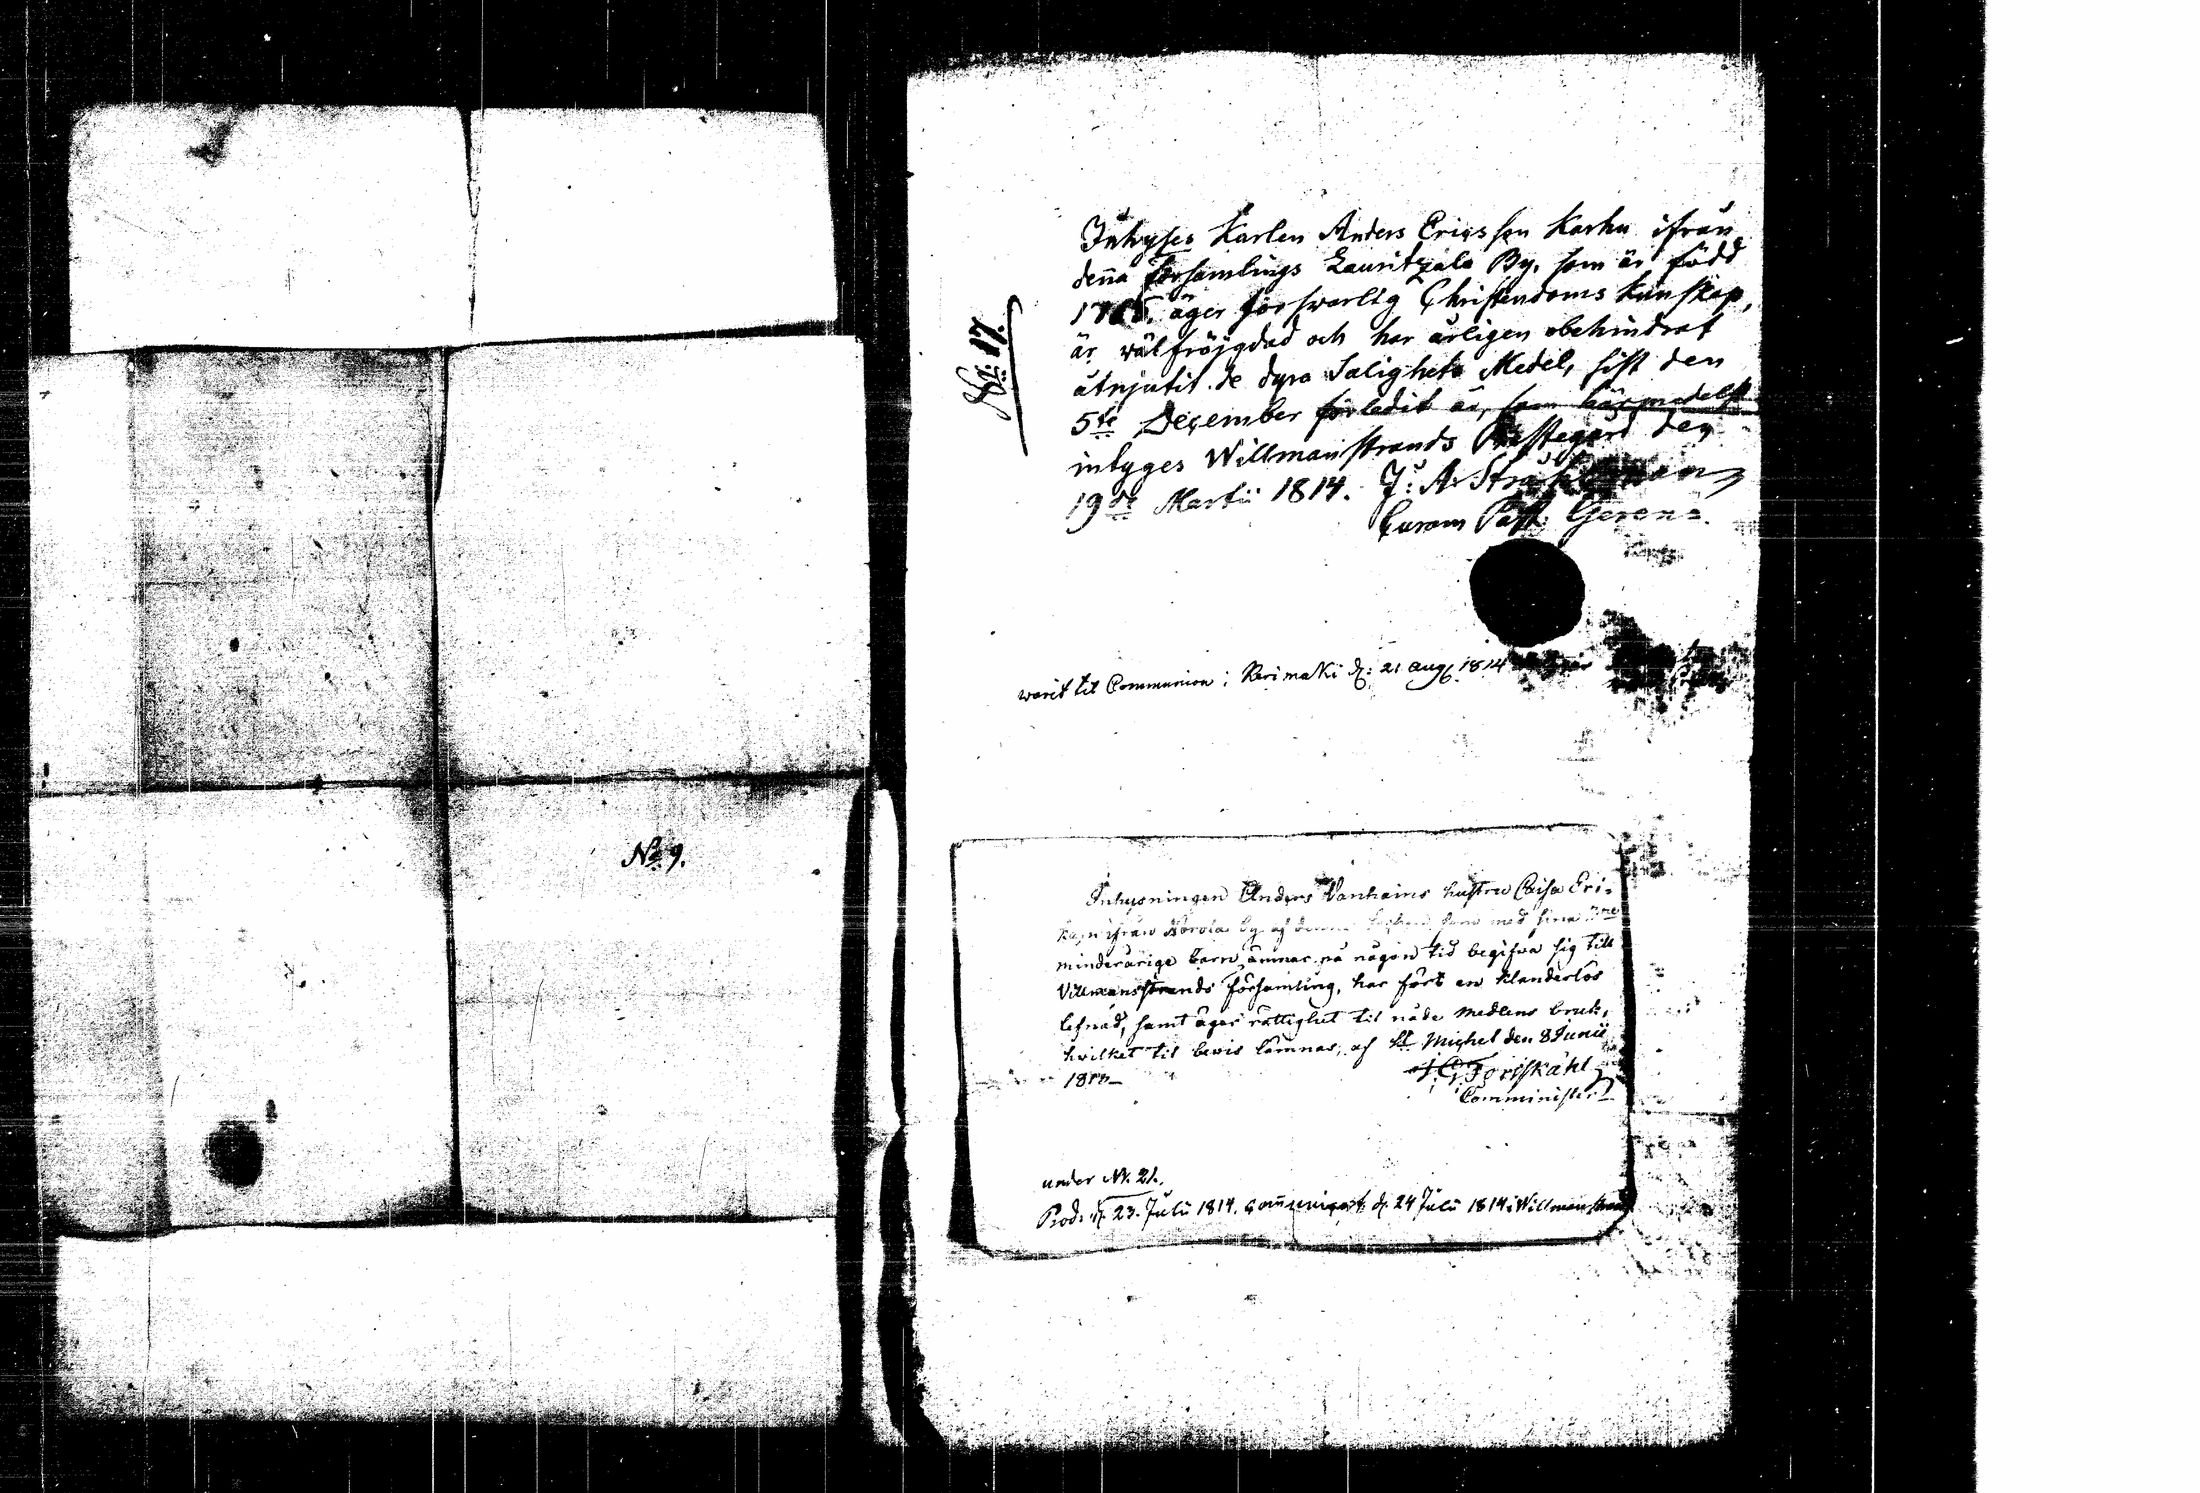 No 9.
No: 17.
Inhyses Karlen Anders Ericsson Karhu ifrån
denna församlings Lauritzala By, som är född
äger försvarlig Christendoms Kunskap,
är wälfröjgdad och har årligen obehindrat
åtnjutit de dyra Salighets Medel, sist den
5te December förledit år, som härmedelst
intyges Willmanstrands Prestegård den
19de Martii 1814. J: A: Stråhlman
Curam Past. Gerens.
warit til Communion i Kerimäki d: 21 aug. 1814
Inhysningen Anders Vanhains hustru Caisa Eri-
ifrån by af denna som med sina
minderårige barn, ämnar på någon tid begifva sig till
Villmanstrands församling, har fört en klanderlös
lefnad, samt äger rättighet til nåde medlens bruk,
hvilket til bevis lämnas, af St Michel den 8 Junii
Forsskåhl
Comminister
under Nr. 21.
Prod. d. 23. Julii 1814. communicerat d. 24 Julii 1814 i Willmanstrand